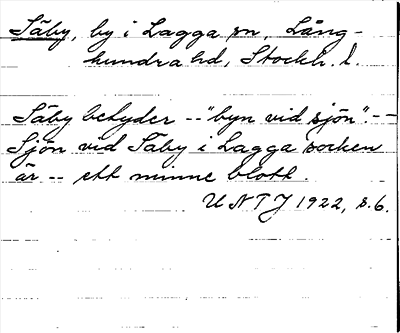 Säby, by i Lagga sn, Lång-
hundra hd, Stockh. l.
Säby betyder -- "byn vid sjön". --
Sjön vid Säby i Lagga socken
är -- ett minne blott.
UNTJ 1922, s. 6.